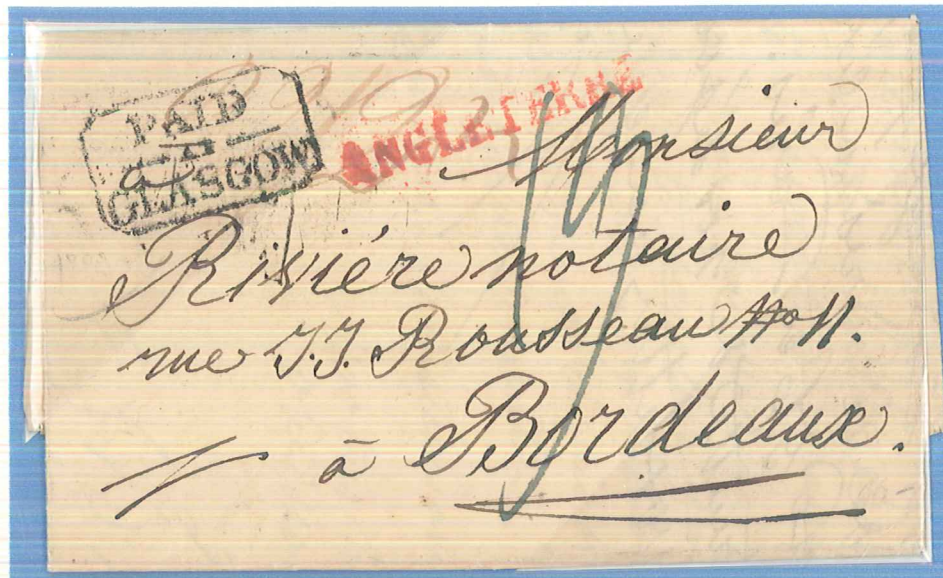 PAID
AT
GLASGOW
ANGLETERRE
Monsieur
Riviére notaire
rue J.J. Rousseau No 11.
à Bordeaux.